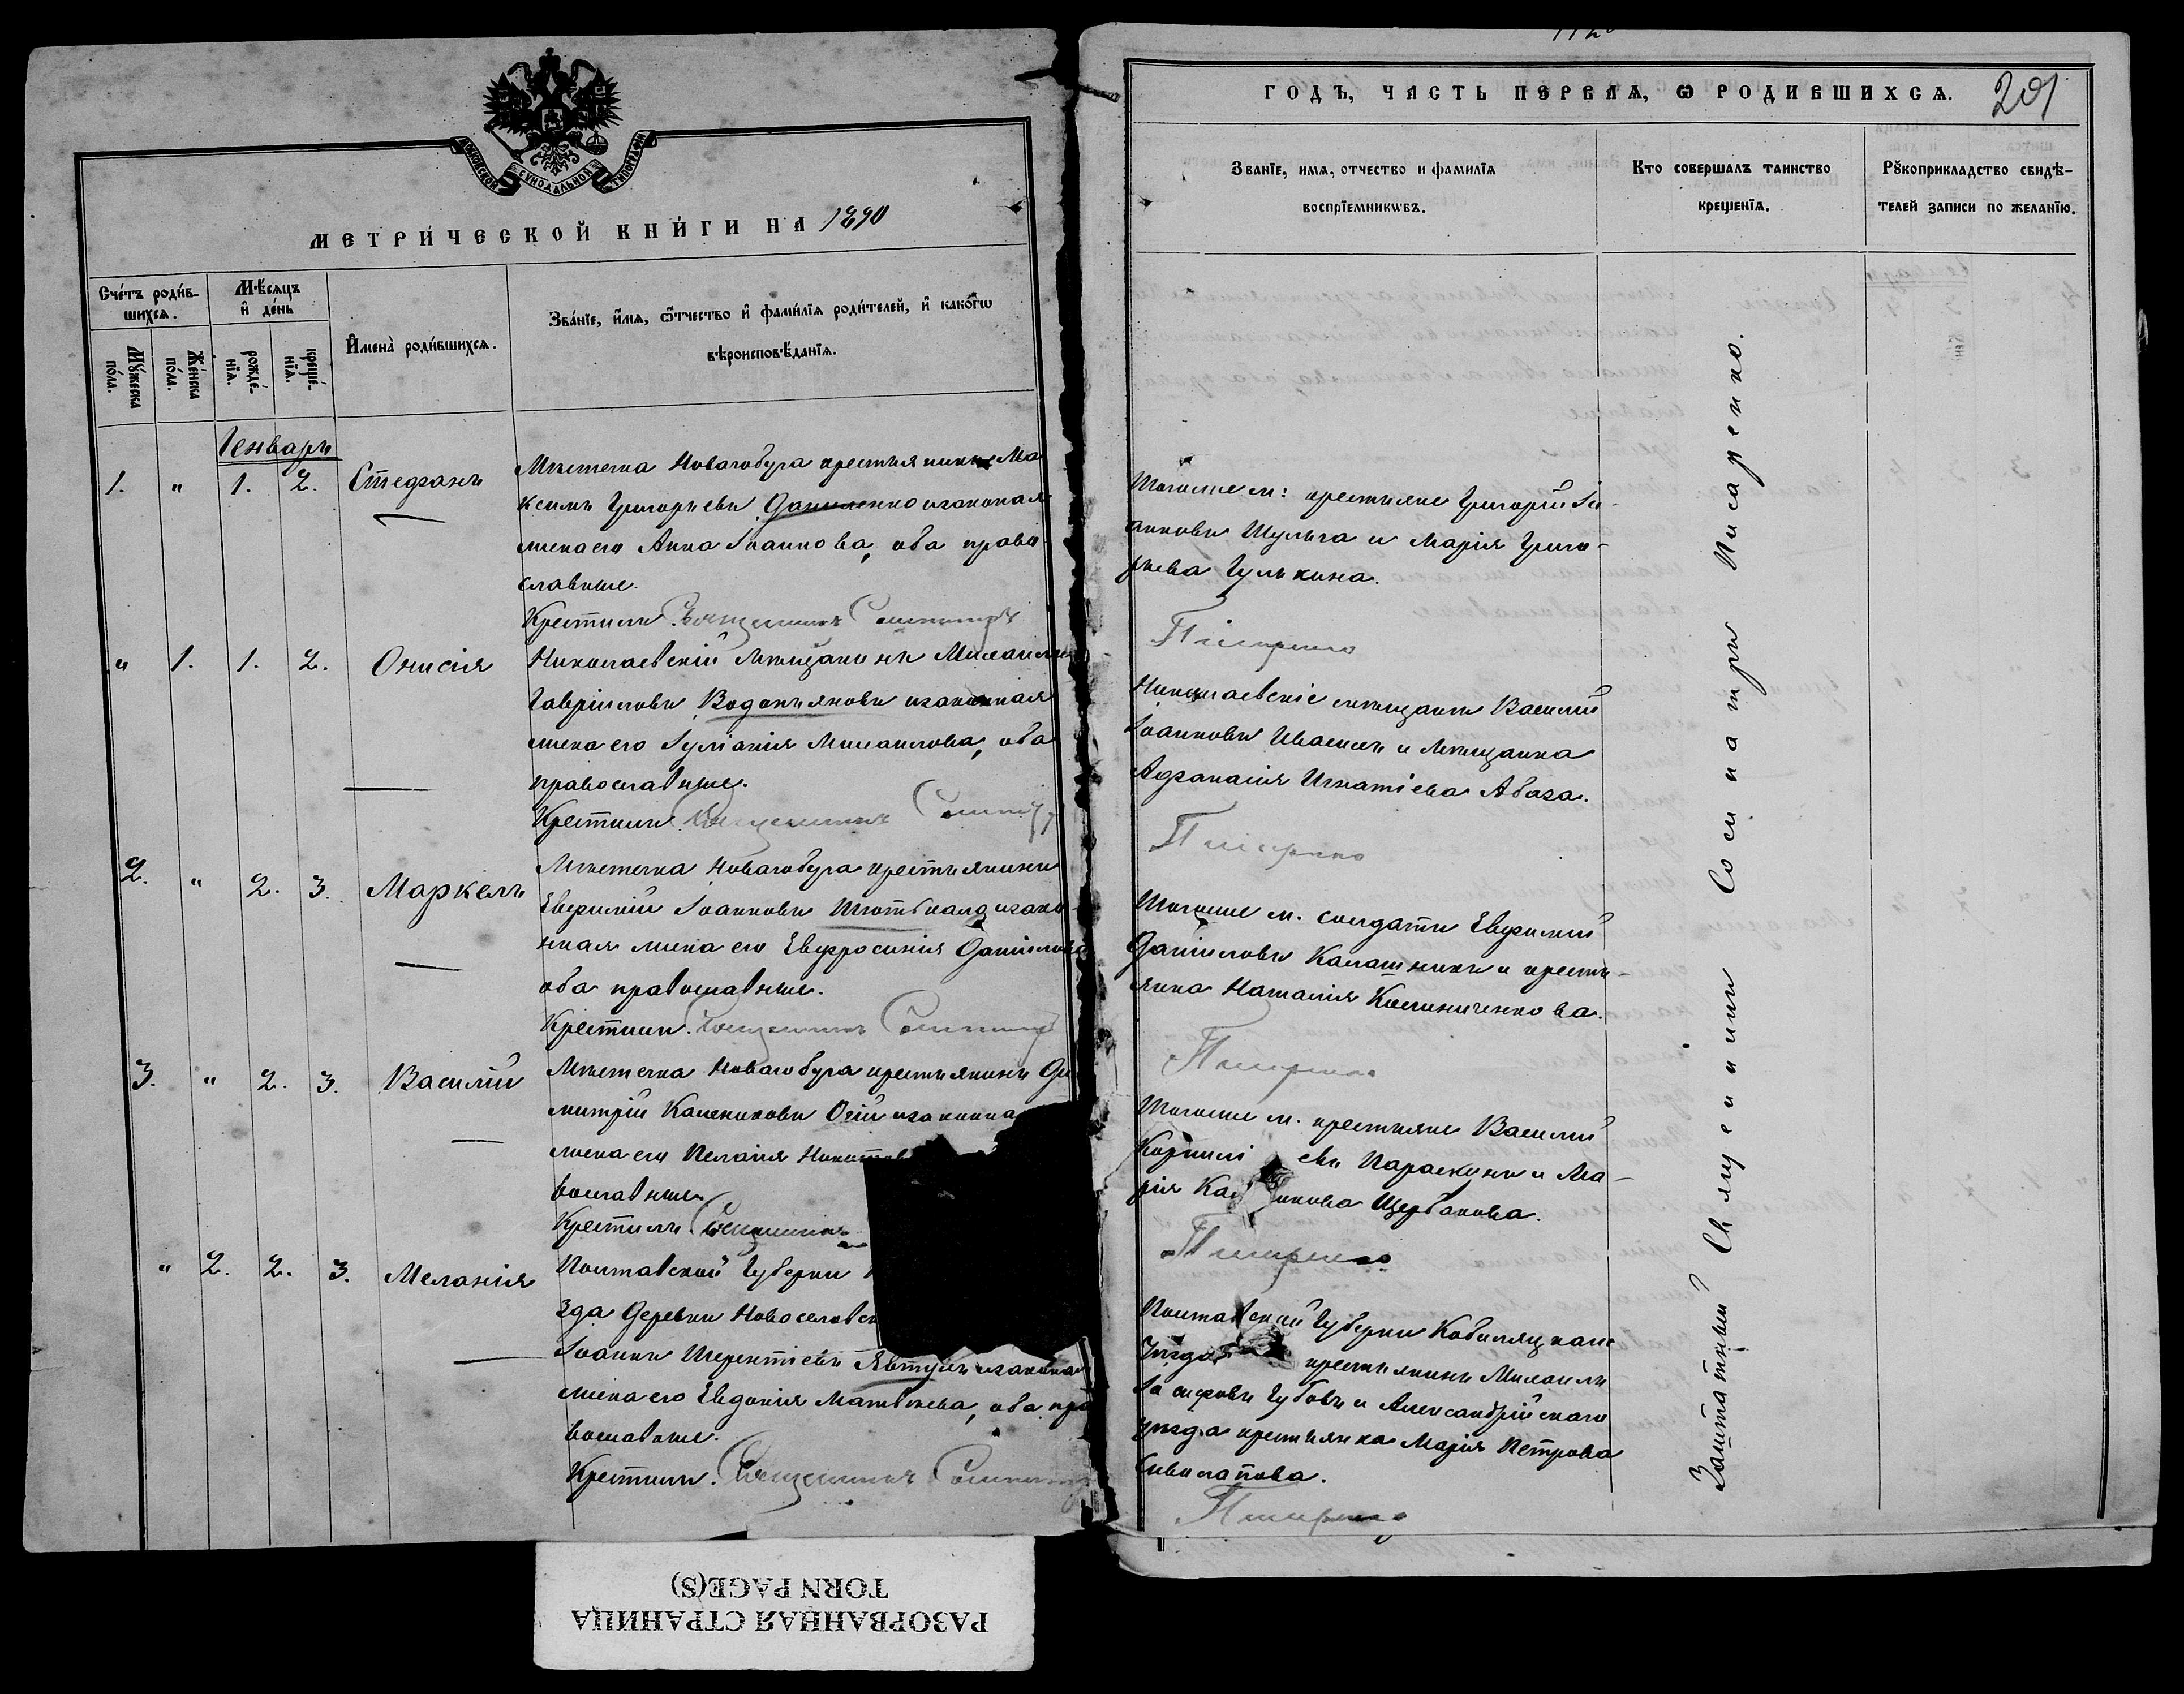 МОСКОВСКОЙ СѴНОДАЛЬНОЙ ТИПОГРАФІИ
МЕТРИ́ЧЕСКОЙ КНИ́ГИ НА 1890
Сче́тъ роди́в-
шихсѧ.
Мѣ́сѧцъ
и҆ де́нь
Мꙋ́жеска
по́ла.
Же́нска
по́ла.
рожде́-
нїѧ.
креще́-
нїѧ.
И҆мена̀ роди́вшихсѧ.
Зва́нїе, и҆́мѧ, ѻ҆́тчество и҆ фами́лїѧ роди́телей, и҆ како́гѡ
вѣроисповѣ́данїѧ.
Генварь
1. " 1. 2. Стефанъ
Мѣстечка Новагобуга крестьянинъ Ма
ксимъ Григорьевъ Даниленко изаконная
жена его Анна Іоаннова, оба право
славные.
Крестилъ. Священникъ Сосипатръ
" 1. 1. 2. Онисія
Николаевскій мѣщанинъ Михаилъ
Гавріиловъ Водопьяновъ изаконная
жена его Іуліанія Михаилова, оба
православные.
Крестилъ Священникъ
2. " 2. 3. Маркелъ
Мѣстечка Новагобуга крестьянинъ
Евфимій Іоанновъ изако
нная жена его Евфросинія Даніилова
оба православные.
Крестилъ. Священникъ
3. " 2. 3. Василій
Мѣстечка Новагобуга крестьянинъ Ди
митрій Калениковъ изаконна
жена его Пелагія
вославные
Крестилъ. Священникъ
" 2. 2. 3. Меланія
Полтавской Губерни
зда Деревни Новоселовск
Іоаннъ Терентіевъ Явтухъ изаконная
жена его Евдокія Матвѣева, оба пра
вославные.
Крестилъ. Священникъ
ГОДЪ, ЧАСТЬ ПЕРВАѦ, Ѡ РОДИВШИХСѦ.
201
Званїе, имѧ, отчество и фамилїѧ
воспрїемникѡвъ.
Кто совершалъ таинство
крещенїѧ.
Рꙋкоприкладство свидѣ-
телей записи по желанїю.
Тогоже м: крестьяне Григорій Іо-
анновъ Шульга и Марія Григо-
рьева Гулькина.
Писаренко
Николаевскіе мѣщанъ Василій
Іоанновъ и мѣщанка
Афанасія Игнатіева Абаза.
Писаренко
Тогоже м. солдатъ Евфимій
Даніиловъ Калашникъ и кресть-
янка Наталія Калиниченкова.
Писаренко
Тогоже м. крестьяне Василій
Корнилі евъ Параскунъ и Ма-
рія Ка никова Щербакова.
Писаренко
Полтавской Губерни Кобеляцкаго
Уѣзда крестьянинъ Михаилъ
Іосифовъ Губовъ и Александрійскаго
уѣзда крестьянка Марія Петрова
Писаренко
Заштатный Священникъ Сосипатръ Писаренко.
РАЗОРВАННАЯ СТРАНИЦА
TORN PAGE(S)